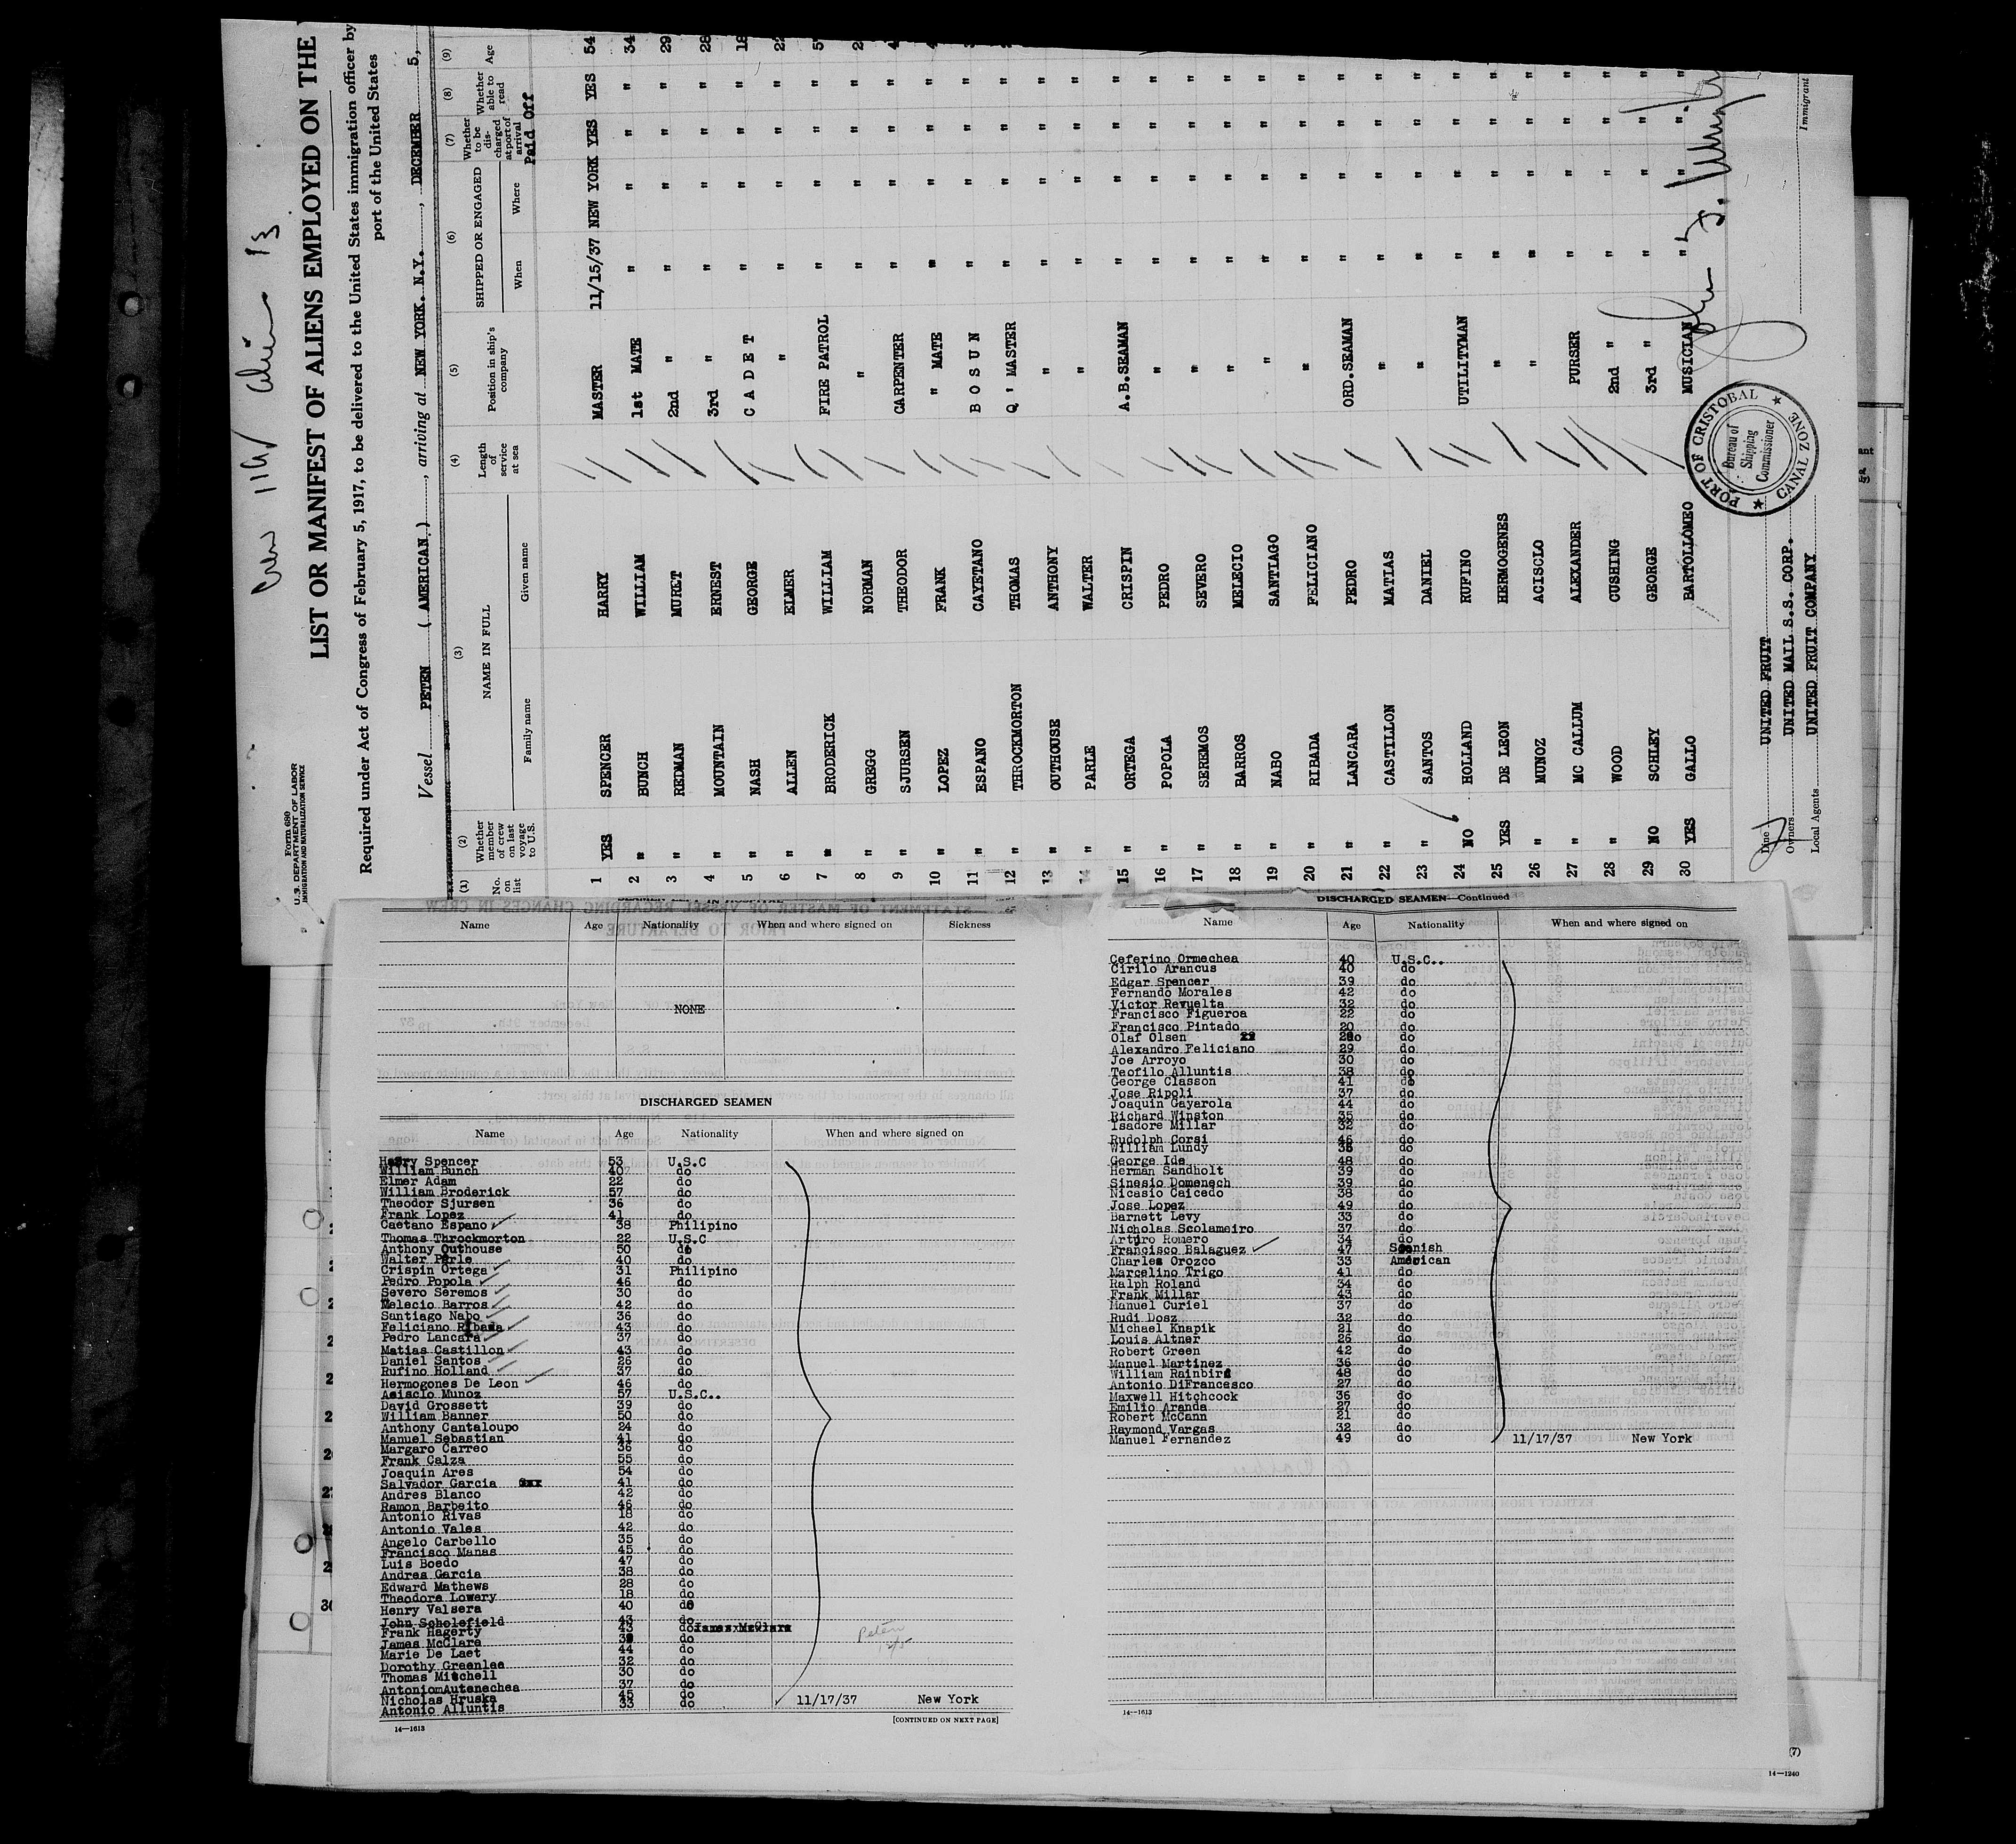 Crew 119 Alien 13
Form 680
U.S. DEPARTMENT OF LABOR
IMMIGRATION AND NATURALIZATION SERVICE
LIST OR MANIFEST OF ALIENS EMPLOYED ON THE
Required under Act of Congress of February 5, 1917, to be delivered to the United States immigration officer by
port of the United States
Vessel PETEN ( AMERICAN ) , arriving at NEW YORK. N.Y. , DECEMBER 5,
(1) (2) (3) (4) (5) (6) (7) (8) (9)
No. on list Whether member of crew on last voyage to U.S. NAME IN FULL Family name Given name Length of service at sea Position in ship's company SHIPPED OR ENGAGED When Where Whether to be discharged at port of arrival Whether able to read Age
Paid Off
1 YES SPENCER HARRY MASTER 11/15/37 NEW YORK YES YES 54
2 " BUNCH WILLIAM 1st MATE " " " " 34
3 " REDMAN MURET 2nd " " " " " 29
4 " MOUNTAIN ERNEST 3rd " " " " " 28
5 " NASH GEORGE C A D E T " " " " 18
6 " ALLEN ELMER " " " " " 22
7 " BRODERICK WILLIAM FIRE PATROL " " " "
8 " GREGG NORMAN " " " " "
9 " SJURSEN THEODOR CARPENTER " " " "
10 " LOPEZ FRANK " MATE " " " "
11 " ESPANO CAYETANO B O S U N " " " "
12 " THROCKMORTON THOMAS Q ' MASTER " " " "
13 " OUTHOUSE ANTHONY " " " " "
14 " PARLE WALTER " " " " "
15 " ORTEGA CRISPIN A.B.SEAMAN " " " "
16 " POPOLA PEDRO " " " " "
17 " SEREMOS SEVERO " " " " "
18 " BARROS MELECIO " " " " "
19 " NABO SANTIAGO " " " " "
20 " RIBADA FELICIANO " " " " "
21 " LANCARA PEDRO ORD.SEAMAN " " " "
22 " CASTILLON MATIAS " " " " "
23 " SANTOS DANIEL " " " " "
24 NO HOLLAND RUFINO UTILITYMAN " " " "
25 YES DE LEON HERMOGENES " " " " "
26 " MUNOZ ACISCLO " " " " "
27 " MC CALLUM ALEXANDER PURSER " " " "
28 " WOOD CUSHING 2nd " " " " "
29 NO SCHLEY GEORGE 3rd " " " " "
30 YES GALLO BARTOLLOMEO MUSICIAN " " " "
Line UNITED FRUIT
Owners UNITED MAIL S.S. CORP.
Local Agents UNITED FRUIT COMPANY
Immigrant
PORT OF CRISTOBAL
Bureau of Shipping Commissioner
CANAL ZONE
Name Age Nationality When and where signed on Sickness
NONE
DISCHARGED SEAMEN
Name Age Nationality When and where signed on
Harry Spencer 53 U.S.C
William Bunch 40 do
Elmer Adam 22 do
William Broderick 57 do
Theodor Sjursen 36 do
Frank Lopez 41 do
Caetano Espano 38 Philipino
Thomas Throckmorton 22 U.S.C
Anthony Outhouse 50 do
Walter Perle 40 do
Crispin Ortega 31 Philipino
Pedro Popola 46 do
Severo Seremos 30 do
Melacio Barros 42 do
Santiago Nabo 36 do
Feliciano Ribada 43 do
Pedro Lancara 37 do
Matias Castillon 43 do
Daniel Santos 26 do
Rufino Holland 37 do
Hermogones De Leon 46 do
Asisclo Munoz 57 U.S.C..
David Grossett 39 do
William Banner 50 do
Anthony Cantaloupo 24 do
Manuel Sebastian 41 do
Margaro Carreo 36 do
Frank Calza 55 do
Joaquin Ares 54 do
Salvador Garcia 41 do
Andres Blanco 42 do
Ramon Barbeito 46 do
Antonio Rivas 18 do
Antonio Vales 42 do
Angelo Carbello 35 do
Francisco Manas 45 do
Luis Boedo 47 do
Andres Garcia 38 do
Edward Mathews 28 do
Theodore Lowery 18 do
Henry Valsera 40 do
John Scholefield 43 do
Frank Hagerty 43 do
James McClara do
Marie De Laet 44 do
Dorothy Greenlee 32 do
Thomas Mitchell 30 do
AntoniomAutenechea 37 do
Nicholas Hruska 45 do 11/17/37 New York
Antonio Alluntis 33 do
Peten 12/5
14—1613 [CONTINUED ON NEXT PAGE]
DISCHARGED SEAMEN—Continued
Name Age Nationality When and where signed on
Ceferino Ormechea 40 U.S.C..
Cirilo Arancus 40 do
Edgar Spencer 39 do
Fernando Morales 42 do
Victor Revuelta 32 do
Francisco Figueroa 22 do
Francisco Pintado 20 do
Olaf Olsen do
Alexandro Feliciano 29 do
Joe Arroyo 30 do
Teofilo Alluntis 38 do
George Classon 41 do
Jose Ripoli 37 do
Joaquin Gayarola 44 do
Richard Winston 35 do
Isadore Millar 32 do
Rudolph Corsi 46 do
William Lundy do
George Ide 48 do
Herman Sandholt 39 do
Sinesio Domenech 39 do
Nicasio Caicedo 38 do
Jose Lopez 49 do
Barnett Levy 33 do
Nicholas Scolameiro 37 do
Arturo Romero 34 do
Francisco Balaguez 47 Spanish
Charles Orozco 33 American
Marcelino Trigo 41 do
Ralph Roland 34 do
Frank Millar 43 do
Manuel Curiel 37 do
Rudi Dosz 32 do
Michael Knapik 21 do
Louis Altner 26 do
Robert Green 42 do
Manuel Martinez 36 do
William Rainbird 48 do
Antonio DiFrancesco 27 do
Maxwell Hitchcock 36 do
Emilio Aranda 27 do
Robert McCann 21 do
Raymond Vargas 32 do
Manuel Fernandez 49 do 11/17/37 New York
14—1613
(7)
14—1240